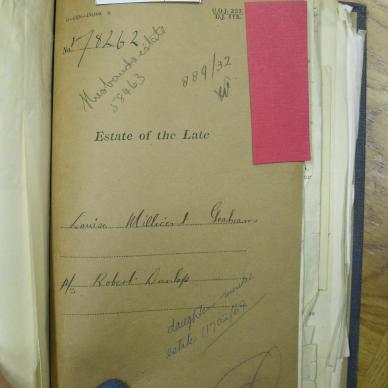 U.D.J. 223.
D.J. 373.
No. 78262
Husbands estate
58463
889/32
Estate of the Late
Louise Millicent Graham
p/s Robert Dunlop
daughters
estate 11702/69